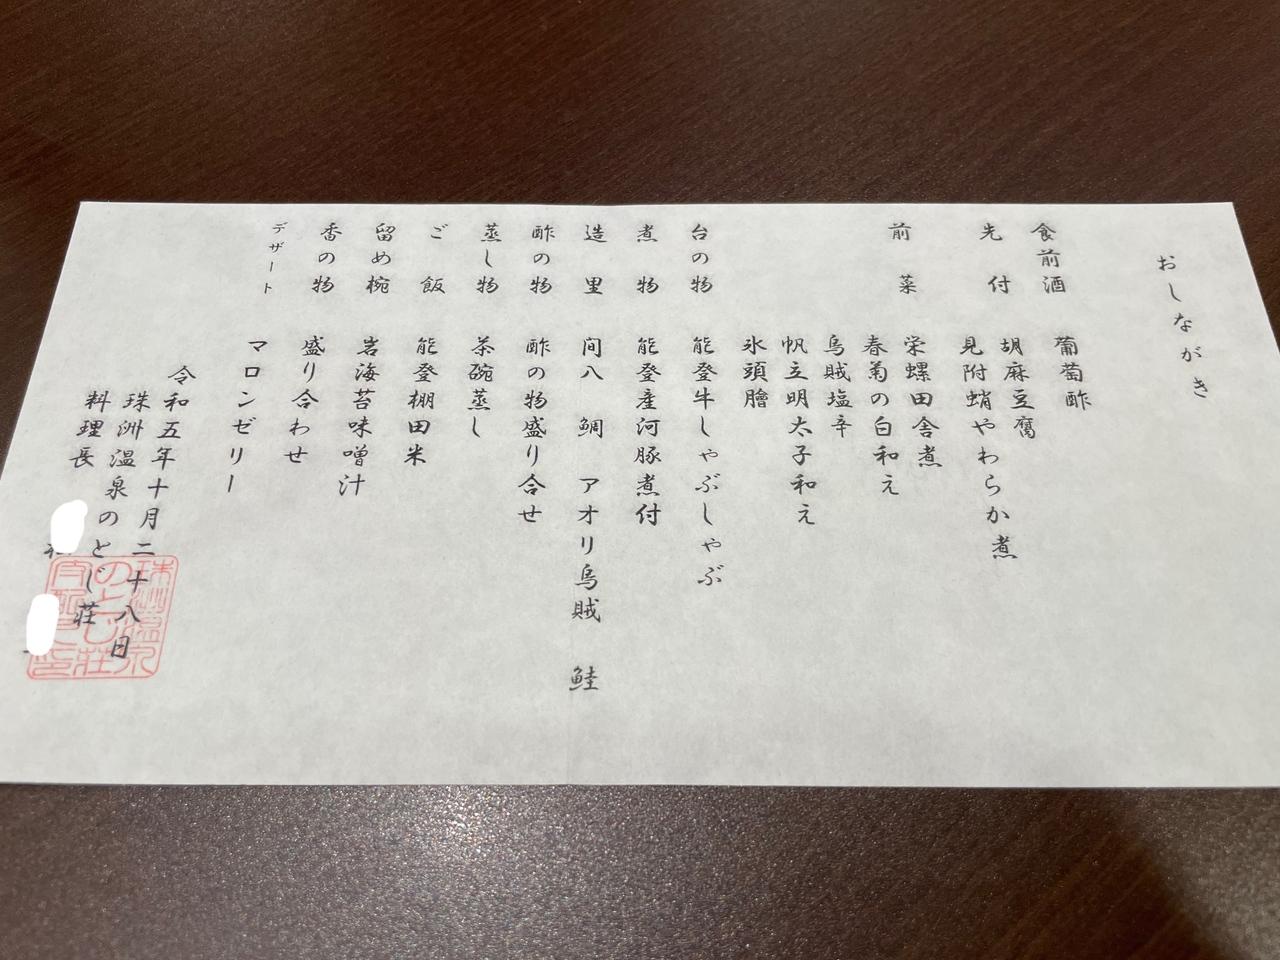 おしながき
食前酒　葡萄酢
先付　胡麻豆腐
見附蛸やわらか煮
前菜　栄螺田舎煮
春菊の白和え
烏賊塩辛
帆立明太子和え
氷頭膾
台の物　能登牛しゃぶしゃぶ
煮物　能登産河豚煮付
造里　間八　鯛　アオリ烏賊　鮭
酢の物　酢の物盛り合せ
蒸し物　茶碗蒸し
ご飯　能登棚田米
留め椀　岩海苔味噌汁
香の物　盛り合わせ
デザート　マロンゼリー
令和五年十月二十八日
珠洲温泉のとじ荘
料理長
珠洲温泉
のとじ荘